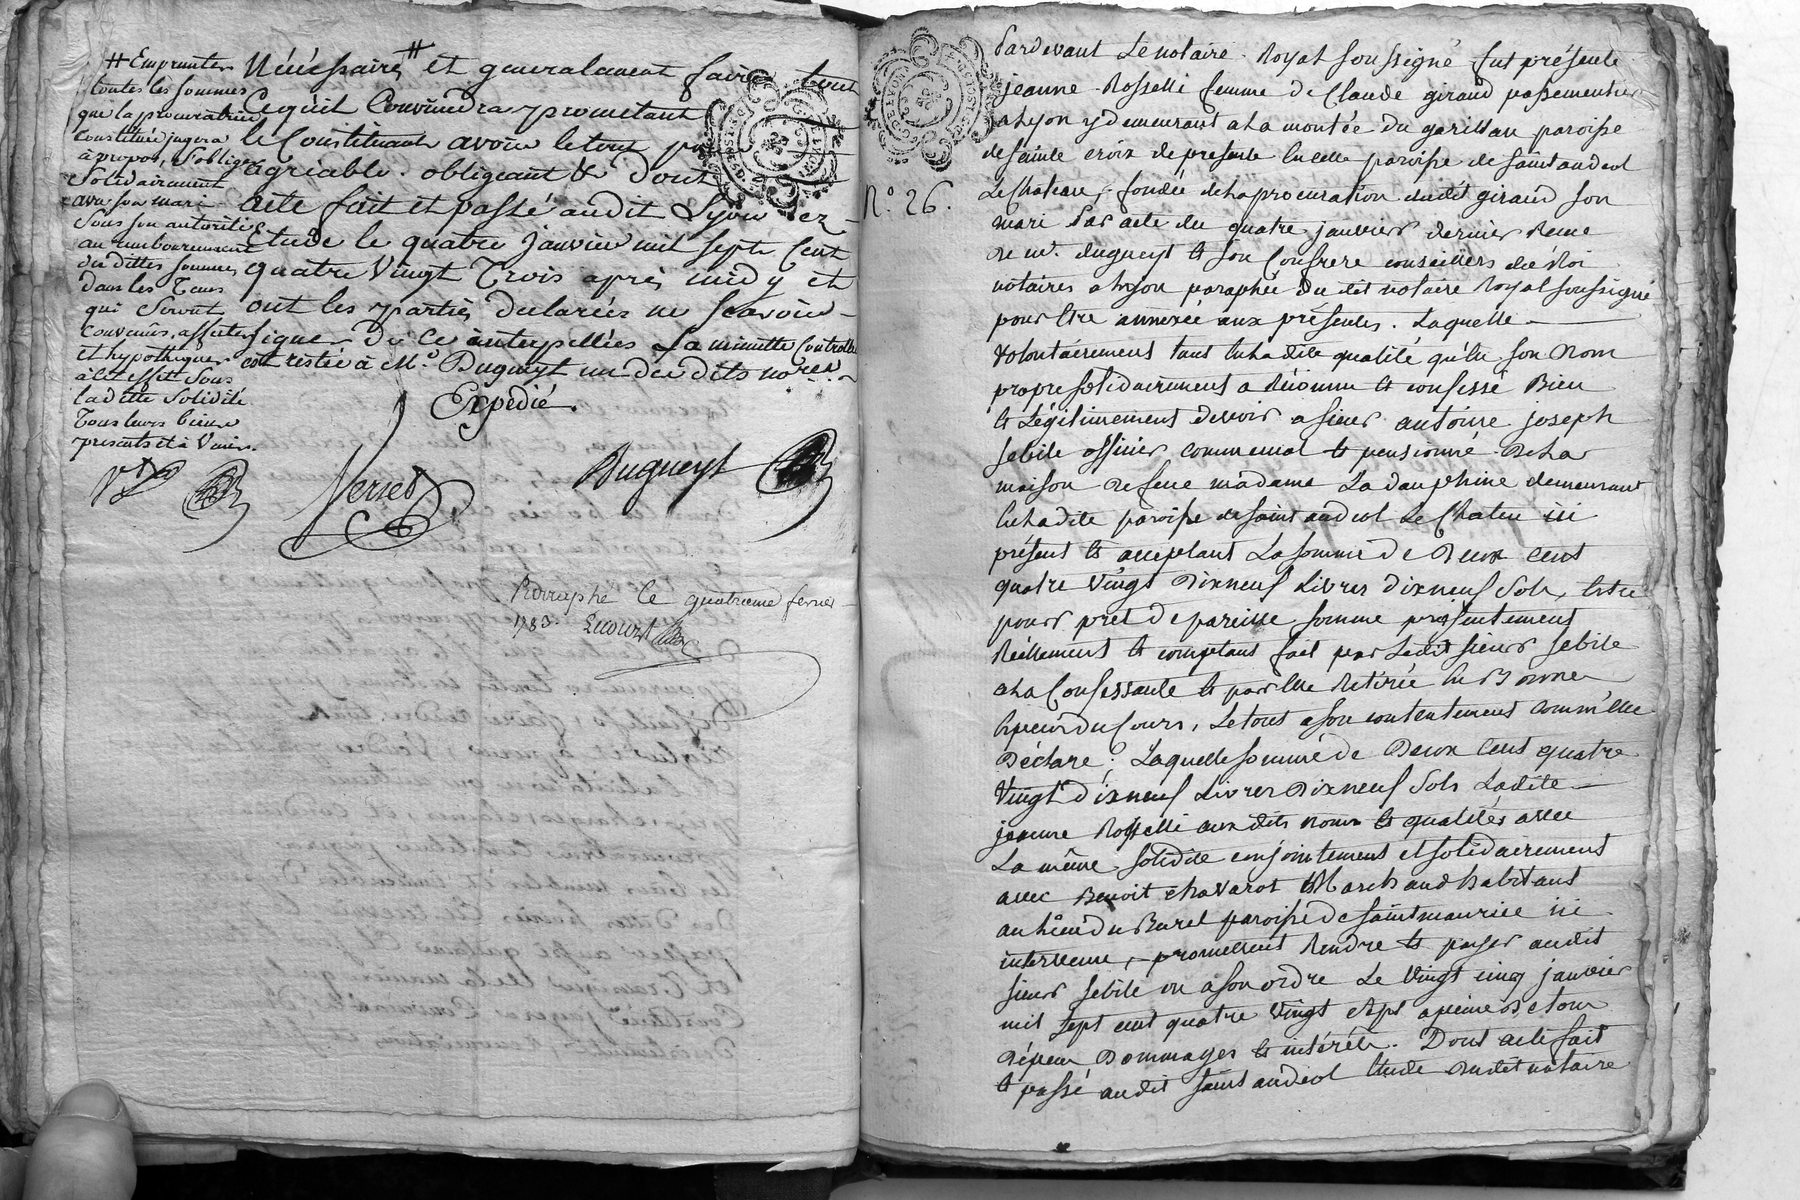 # Emprunter
toutes les sommes
que la procuratrice
constituée jugera
à propos, s'obliger
Solidairement
avec son mari
Sous son autorité
au remboursement
des dittes sommes
dans les Tems
qui Seront
convenus, affecter
et hypothequer
à cet effet Sous
ladette Solidité
Tous leurs biens
presents et à Venir.
Nécéssaires # et generalement faire tout
Ce qu'il Conviendra promettant
le Constituant avoir le tout pour
agréable. obligeant &c dont
acte fait et passé audit Lyon ez
Etude le quatre janvier mil sept Cent
quatre Vingt Trois après midy et
ont les parties declarées ne Scavoir
signer de Ce interpellées La minutte Controllée
est restée à Me. Dugueyt un des dits nores.
Expédié.
Dugueyt
Paraphé le quatrieme fevrier
1783.
No. 26.
Pardevant Le notaire Royal Soussigné fut présente
jeanne Rosselli femme De Claude giraud passementier
a Lyon y demeurant a La montée du garillan paroisse
de sainte croix de presente en cette paroisse de saint andeol
Le Chateau, fondée de La procuration dudit giraud son
mari Par acte du quatre janvier dernier Reçue
De me. dugueyt et son Confrere conseillers du Roi
notaires a Lyon paraphée Du dit notaire Royal Soussigné
pour Etre annexée aux présentes. Laquelle
volontairement tant en La dite qualité qu'en son Nom
propre solidairement a Réconnu et confessé Bien
et Légitimement devoir a sieur antoine joseph
sebile officier commensal et pensionné De La
maison De feue madame La dauphine demeurant
en La dite paroisse de saint andeol Le Chateau ici
présent et acceptant La somme De Deux cent
quatre Vingt Dixneuf Livres Dixneuf Sols, Cette
pour pret De pareille somme présentement
Réellement et comptant fait par Ledit sieur sebile
a La Confessante et par Elle Retirée En Bonnes
Especes du Cours, Le tout a son contentement comm'elle
Déclare. Laquelle somme De Deux Cent quatre
Vingt Dixneuf Livres Dixneuf Sols Ladite
jeanne Rosselli aux dits noms et qualités avec
La même solidité conjointement et solidairement
avec Benoit chavarot Marchand habitant
au Lieu Du Burel paroisse De saint maurice ici
intervenu, promettent Rendre et payer audit
sieur sebile ou a son ordre Le Vingt cinq janvier
mil Sept cent quatre Vingt Sept a peine De tous
Dépens Dommages et intérêts. Dont acte fait
et passé audit saint andeol Etude dudit notaire